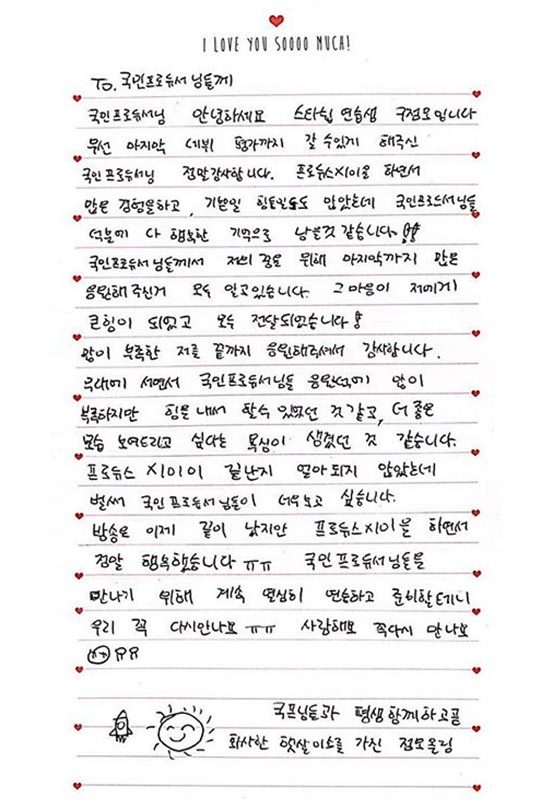 I LOVE YOU SOOOO MUCH!
To. 국민프로듀서님들께
국민프로듀서님 안녕하세요 스타쉽 연습생 구정모입니다
우선 마지막 데뷔 평가까지 갈 수있게 해주신
국민프로듀서님 정말감사합니다. 프로듀스X101을 하면서
많은 경험을하고, 기쁜일 힘든일들도 많았는데 국민프로듀서님들
덕분에 다 행복한 기억으로 남을것 같습니다!!
국민프로듀서님들께서 저의 꿈을 위해 마지막까지 많은
응원해주신거 모두 알고있습니다. 그 마음이 저에게
큰힘이 되었고 모두 전달되었습니다!
많이 부족한 저를 끝까지 응원해주셔서 감사합니다.
무대에 서면서 국민프로듀서님들 응원덕에 많이
부족하지만 힘을 내서 할수 있었던 것 같고, 더 좋은
모습 보여드리고 싶다는 욕심이 생겼던 것 같습니다.
프로듀스 X101이 끝난지 얼마 되지 않았는데
벌써 국민 프로듀서님들이 너무 보고 싶습니다.
방송은 이제 끝이 났지만 프로듀스X101을 하면서
정말 행복했습니다 ㅠㅠ 국민 프로듀서님들을
만나기 위해 계속 열심히 연습하고 준비할테니
우리 꼭 다시만나요 ㅠㅠ 사랑해요 꼭다시 만나요
ㅠㅠ
국프님들과 평생 함께하고픈
화사한 햇살미소를 가진 정모올림